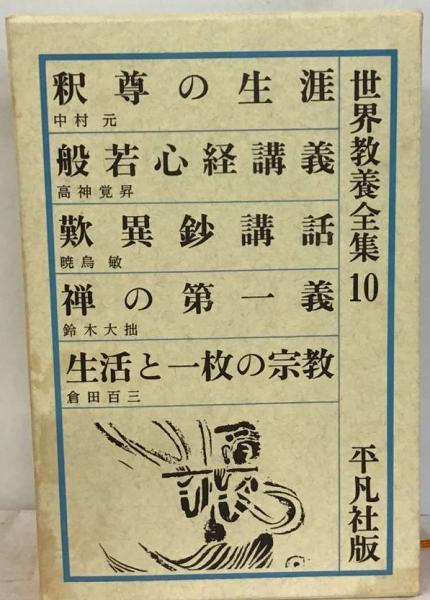 世界教養全集 10
平凡社版
釈尊の生涯
中村 元
般若心経講義
高神覚昇
歎異鈔講話
暁烏 敏
禅の第一義
鈴木大拙
生活と一枚の宗教
倉田百三